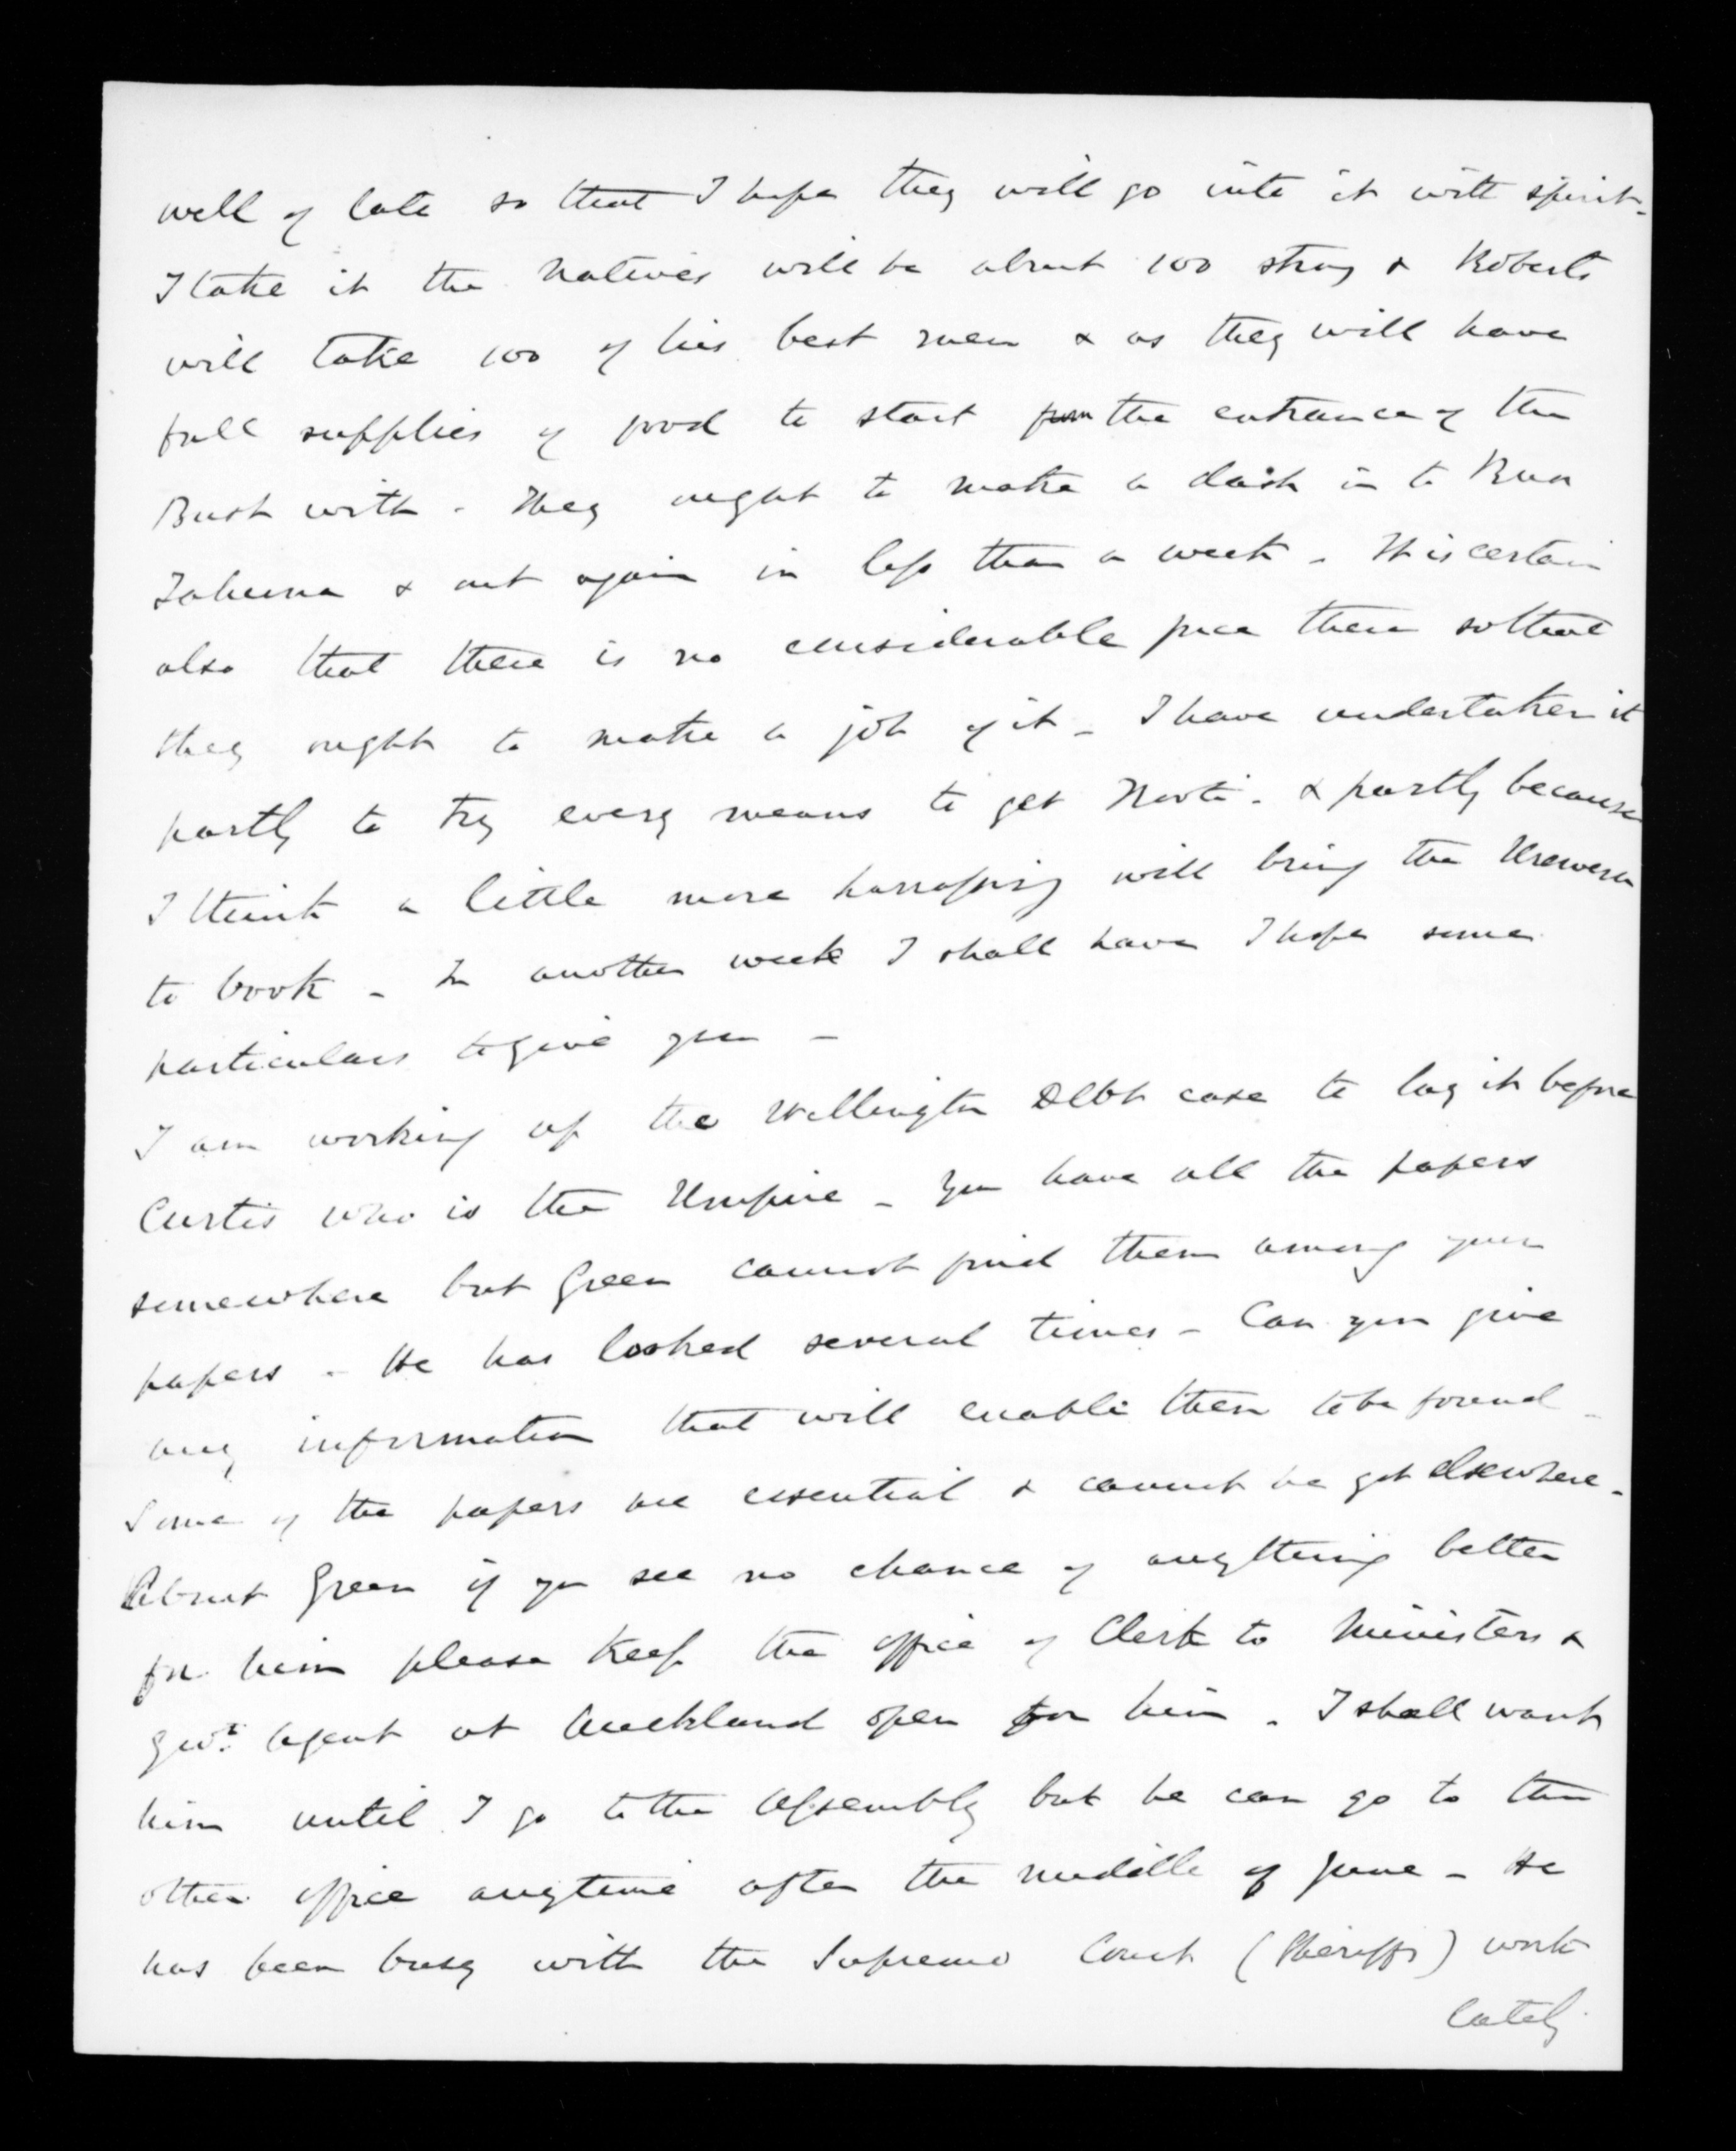 well of late so that I hope they will go into it with spirit -
I take it the Natives will be about 100 strong & Roberts
will take 100 of his best men & as they will have
full supplies of food to start from the entrance of the
Bush with. They ought to make a dash in to Rua
Tahuna & out again in less than a week - It is certain
also that there is no considerable force there so that
they ought to make a job of it - I have undertaken it
partly to try every means to get Kooti - & partly because
I think a little more harrassing will bring the Urewera
to book - In another week I shall have I hope some
particulars to give you -
I am working up the Wellington Debt case to lay it before
Curtis who is the Umpire - You have all the papers
somewhere but Green cannot find them among your
papers - He has looked several times - Can you give
any information that will enable them to be found -
Some of the papers are essential & cannot be got elsewhere -
About Green if you see no chance of anything better
for him please keep the office of Clerk to Ministers &
Govt. Agent at Auckland open for him - I shall want
him until I go to the Assembly but he can go to the
other office anytime after the middle of June - He
has been busy with the Supreme Court (Sheriffs) work
lately